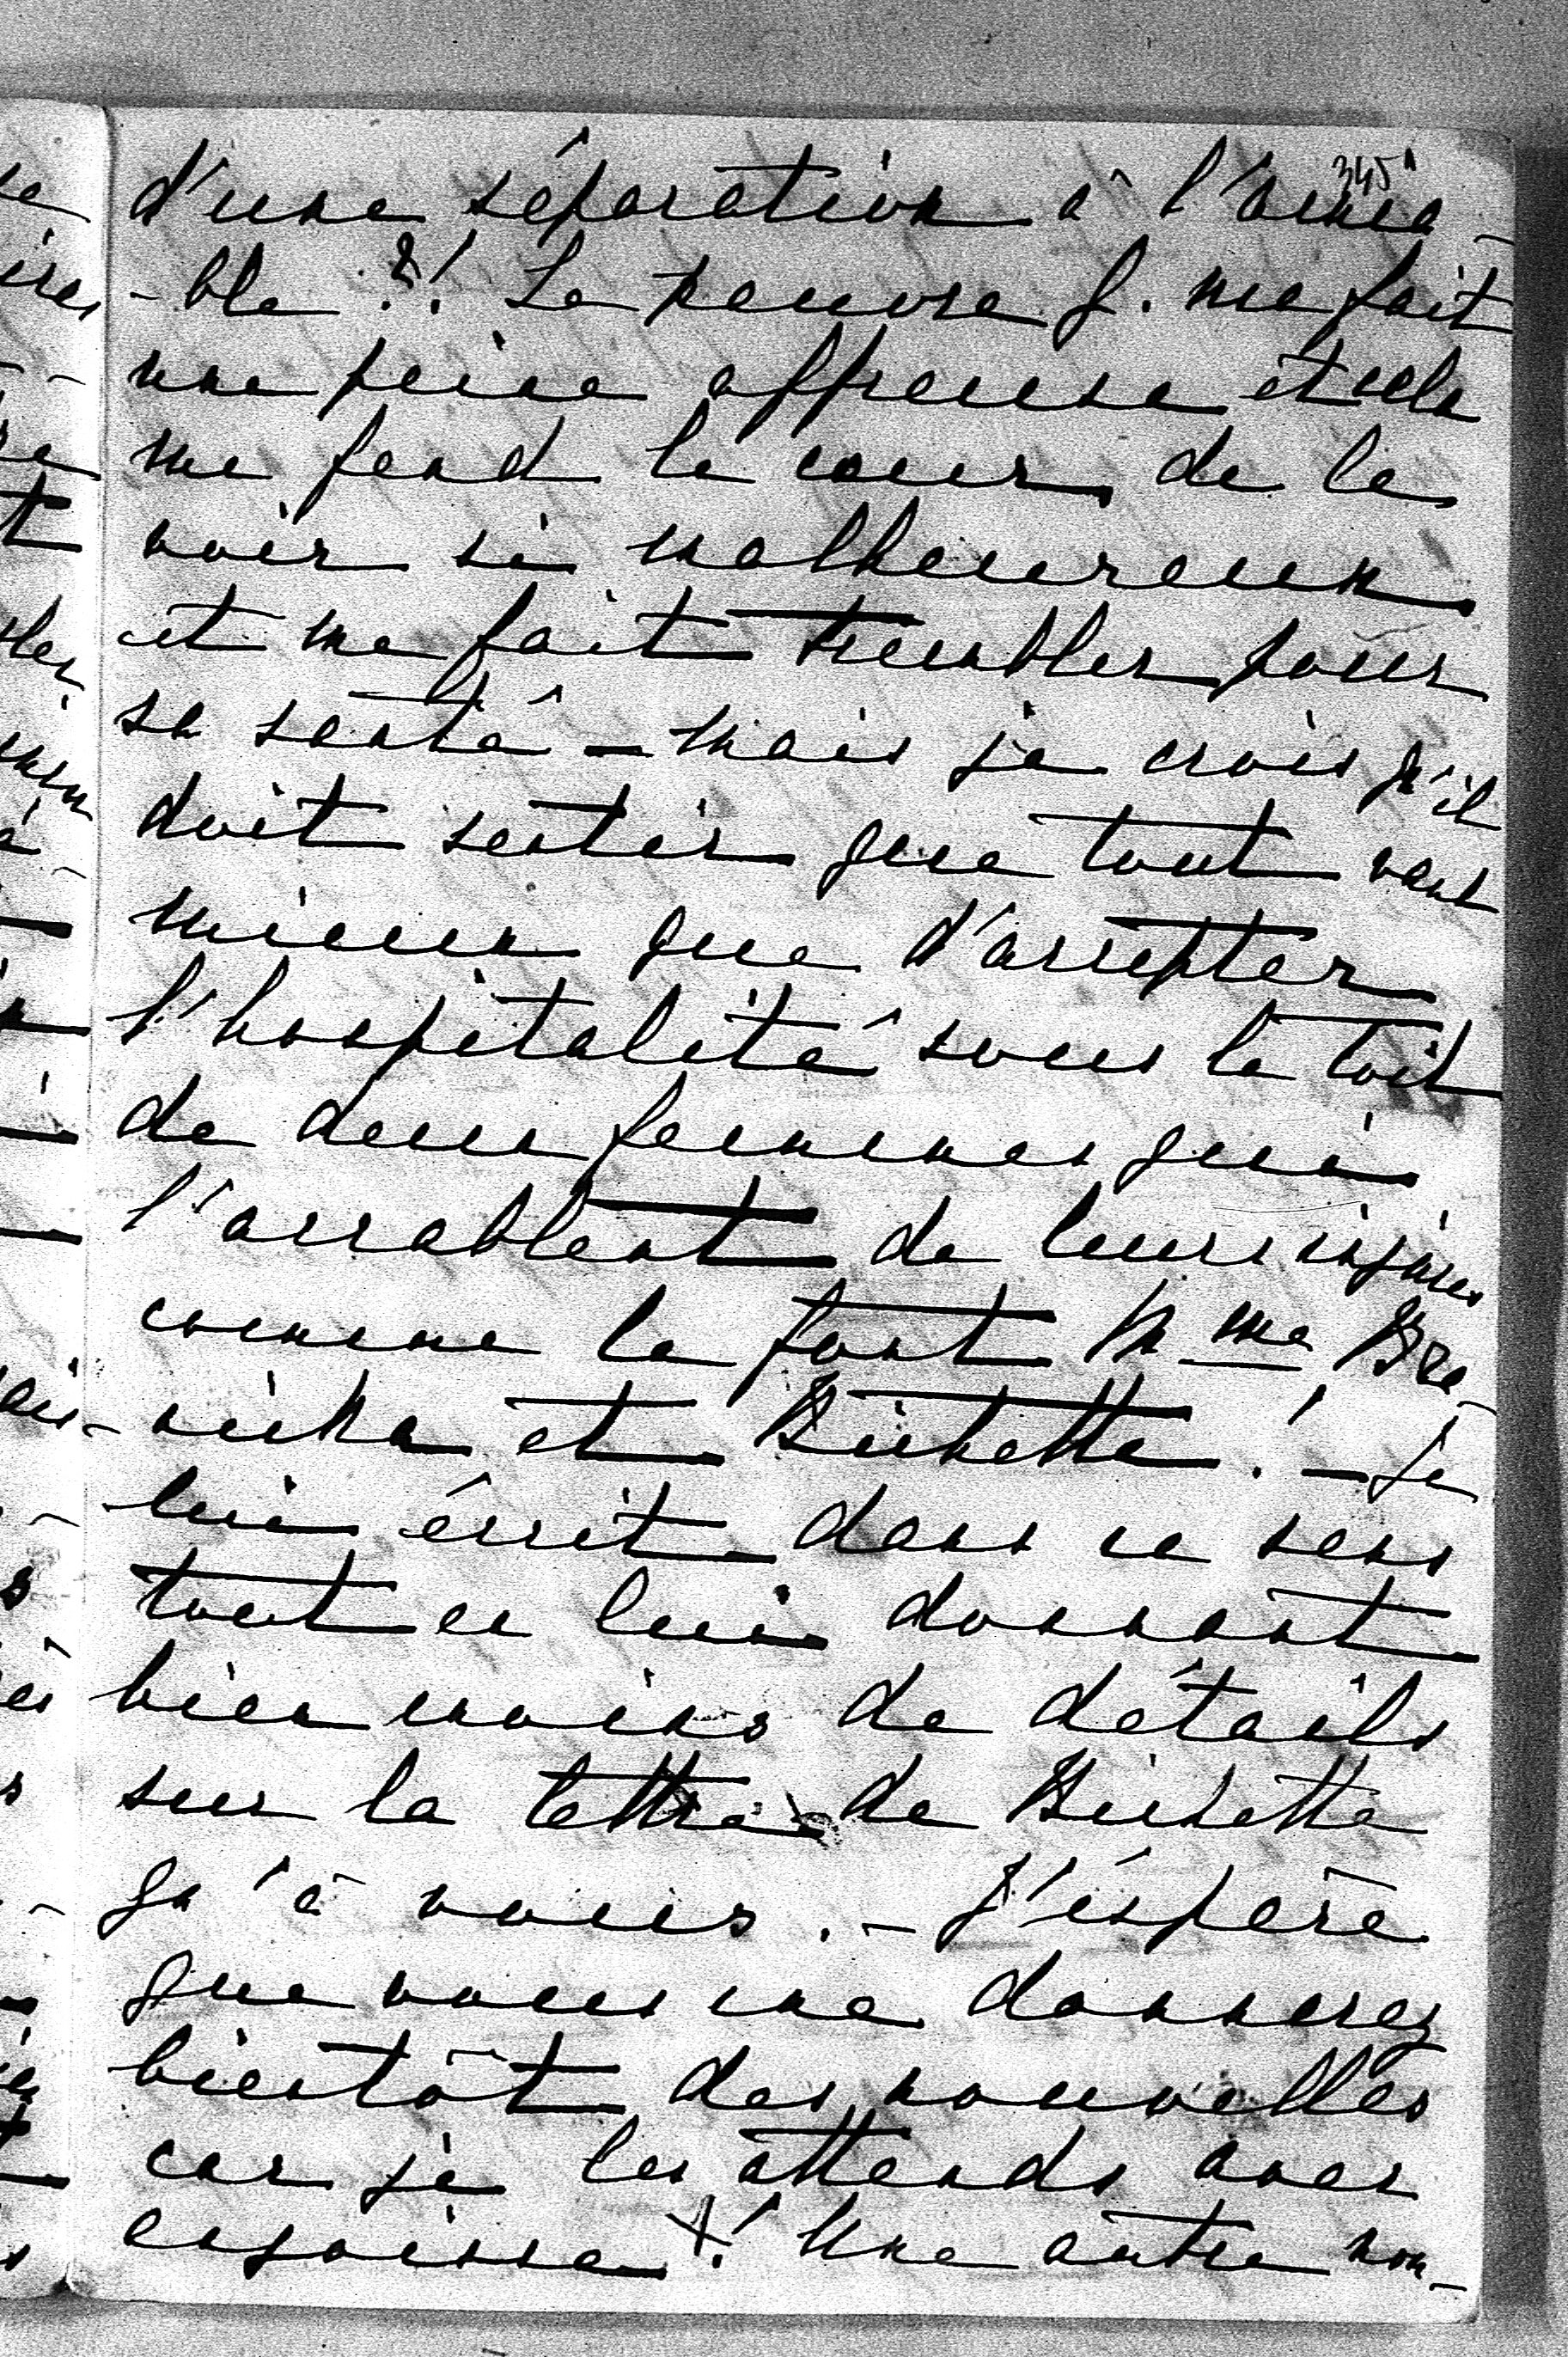 345
d'une séparation à l'amia-
-ble ?! Le pauvre J. me fait
une peine affreuse et cela
me fend le cœur de le
voir si malheureux
et me fait trembler pour
sa santé – mais je crois qu'il
doit sentir que tout vaut
mieux que d'accepter
l'hospitalité sous le toit
de deux femmes qui
l'accablent de leurs injures
comme le font Mme
et Bichette ! – Je
lui écrit dans ce sens
tout en lui donnant
bien moins de détails
sur la lettre de Bichette
qu'à vous. – J'éspère
que vous me donnerez
bientôt des nouvelles
car je les attends avec
angoisse ! Une autre nou-